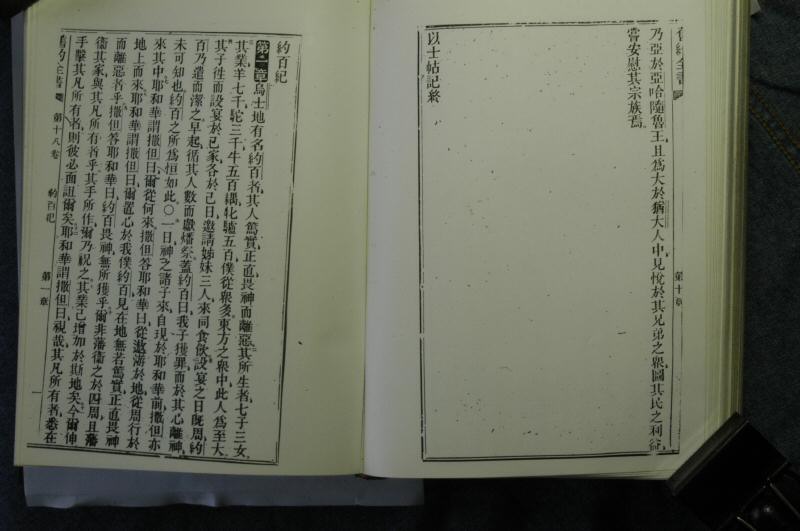 舊約全書
乃亞於亞哈隨魯王且爲大於猶大人中見悅於其兄弟之衆圖其民之利益
嘗安慰其宗族焉
以士帖記終
第十章
約百紀
第一章烏士地有名約百者其人篤實正直畏神而離惡其所生者七子三女
其業羊七千駝三千牛五百耦牝驢五百僕從衆多東方之衆中此人爲至大
其子往而設宴於己家各於己日邀請姊妹三人來同食飲設宴之日旣周約
百乃遣而潔之早起循其人數而獻燔祭蓋約百曰我子獲罪而於其心離神
未可知也約百之所爲恒如此○一日神之諸子來自現於耶和華前撒但亦
來其中耶和華謂撒但曰爾從何來撒但答耶和華曰從遨游於地從周行於
地上而來耶和華謂撒但曰爾置心於我僕約百見在地無若篤實正直畏神
而離惡者乎撒但答耶和華曰約百畏神無所獲乎爾非藩衛之於四周且藩
衛其家與其凡所有者乎其手所作爾乃祝之其業已增加於斯地矣今爾伸
手擊其凡所有者則彼必面詛爾矣耶和華謂撒但曰視哉其凡所有者悉在
舊約全書
第十八卷
約百紀
第一章
一